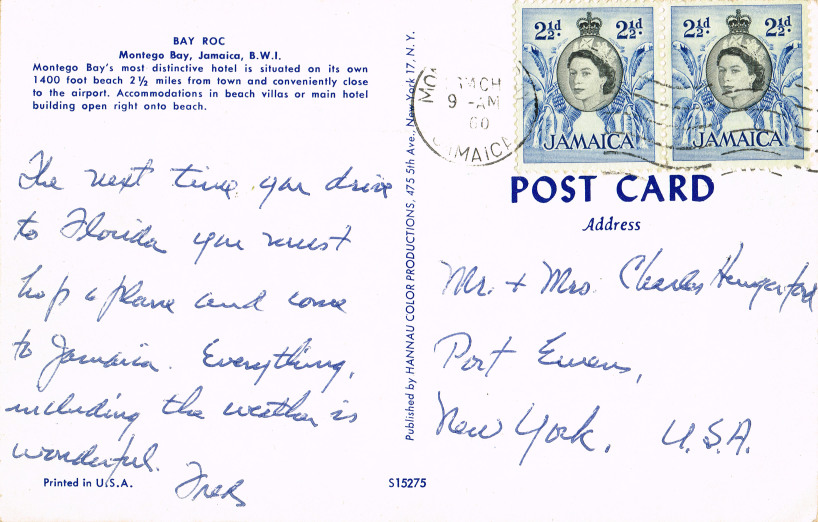 BAY ROC
Montego Bay, Jamaica, B.W.I.
Montego Bay's most distinctive hotel is situated on its own
1400 foot beach 2½ miles from town and conveniently close
to the airport. Accommodations in beach villas or main hotel
building open right onto beach.
The next time you drive
to Florida you must
hop a plane and come
to Jamaica. Everything,
including the weather is
wonderful.
Fred
Printed in U.S.A.
S15275
Published by HANNAU COLOR PRODUCTIONS, 475 5th Ave., New York 17, N.Y.
MCH
9 - AM
60
JAMAICA
2½d. 2½d.
JAMAICA
2½d. 2½d.
JAMAICA
POST CARD
Address
Mr. + Mrs. Charles Hungerford
Port Ewen,
New York, U.S.A.